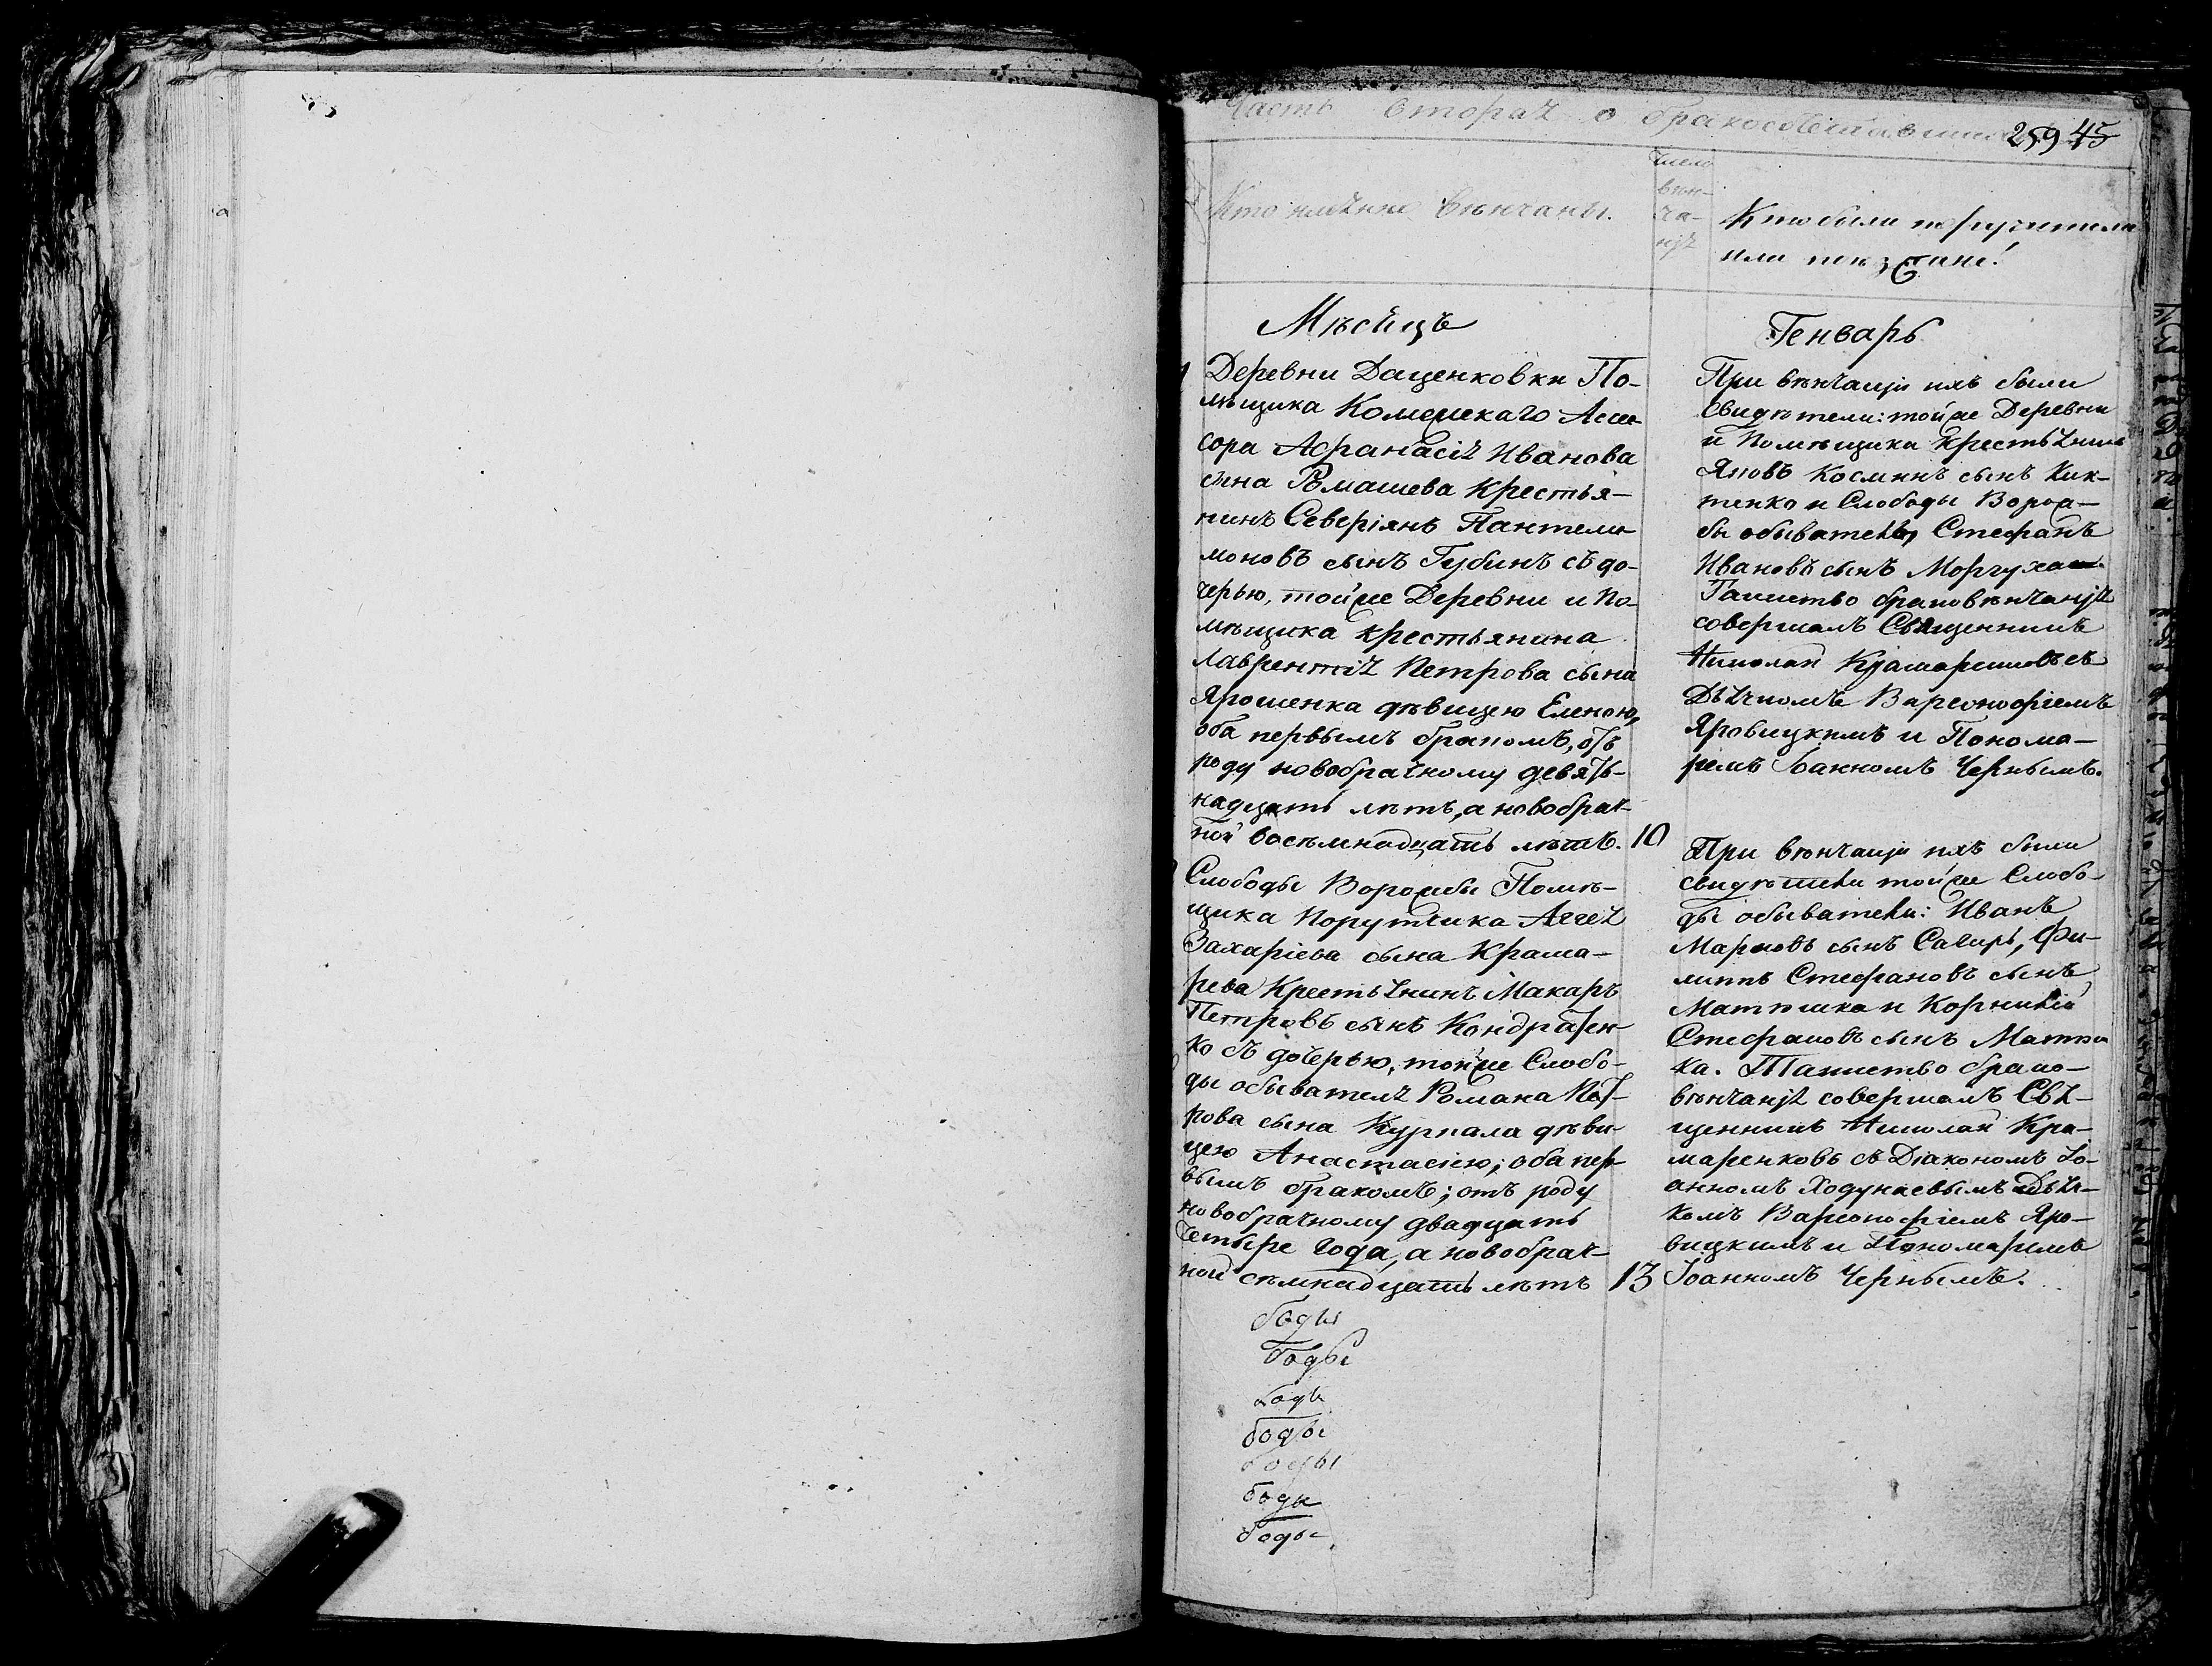 Часть вторая о бракосочетавшихся
259 45
Кто имянно вѣнчаны.
Число
вѣн-
ча-
нія
Кто были поручители
или поѣзжане!
Мѣсяцъ
Генварь
1
Деревни Даценковки По-
мѣщика Колежскаго Ассе-
сора Афанасія Иванова
сына Ромашева Крестья-
нинъ Северіянъ Пантели-
моновъ сынъ Губинъ съ до-
черью, той же Деревни и По-
мѣщика крестьянина
Лаврентія Петрова сына
Ярошенка дѣвицею Еленою,
оба первымъ бракомъ, отъ
роду новобрачному девять-
надцать лѣтъ, а новобрач-
ной восѣмнадцать лѣтъ. 10
При вѣнчаніи ихъ были
свидѣтели: той же Деревни
и Помѣщика крестьянинъ
Яковъ Косминъ сынъ Кик-
тенко и Слободы Ворож-
бы обыватель Стефанъ
Ивановъ сынъ
Таинство браковѣнчанія
совершалъ Священникъ
Николай Крамаренковъ съ
Дьячкомъ Варсонофіемъ
Яровицкимъ и Понома-
ремъ Іоанномъ Чернымъ.
Слободы Ворожбы Помѣ-
щика Порутчика Аггея
Захаріева сына Крама-
рева Крестьянинъ Макаръ
Петровъ сынъ Кондратен-
ко съ дочерью, той же Слобо-
ды обывателя Романа Пет-
рова сына Курпала дѣви-
цею Анастасіею; оба пер-
вымъ бракомъ; отъ роду
новобрачному двадцать
четыре года, а новобрач-
ной сѣмнадцать лѣтъ 13
При вѣнчаніи ихъ были
свидѣтели той же Слобо-
ды обыватели: Иванъ
Марковъ сынъ Фи-
липъ Стефановъ сынъ
Матюшка и Корнилій
Стефановъ сынъ
ка. Таинство брако-
вѣнчанія совершалъ Свя-
щенникъ Николай Кра-
маренковъ съ Діакономъ Іо-
анномъ Ходунаевымъ Дьяч-
комъ Варсонофіемъ Яро-
вицкимъ и Пономаремъ
Іоанномъ Чернымъ.
боды
боды
боды
боды
боды
боды
боды